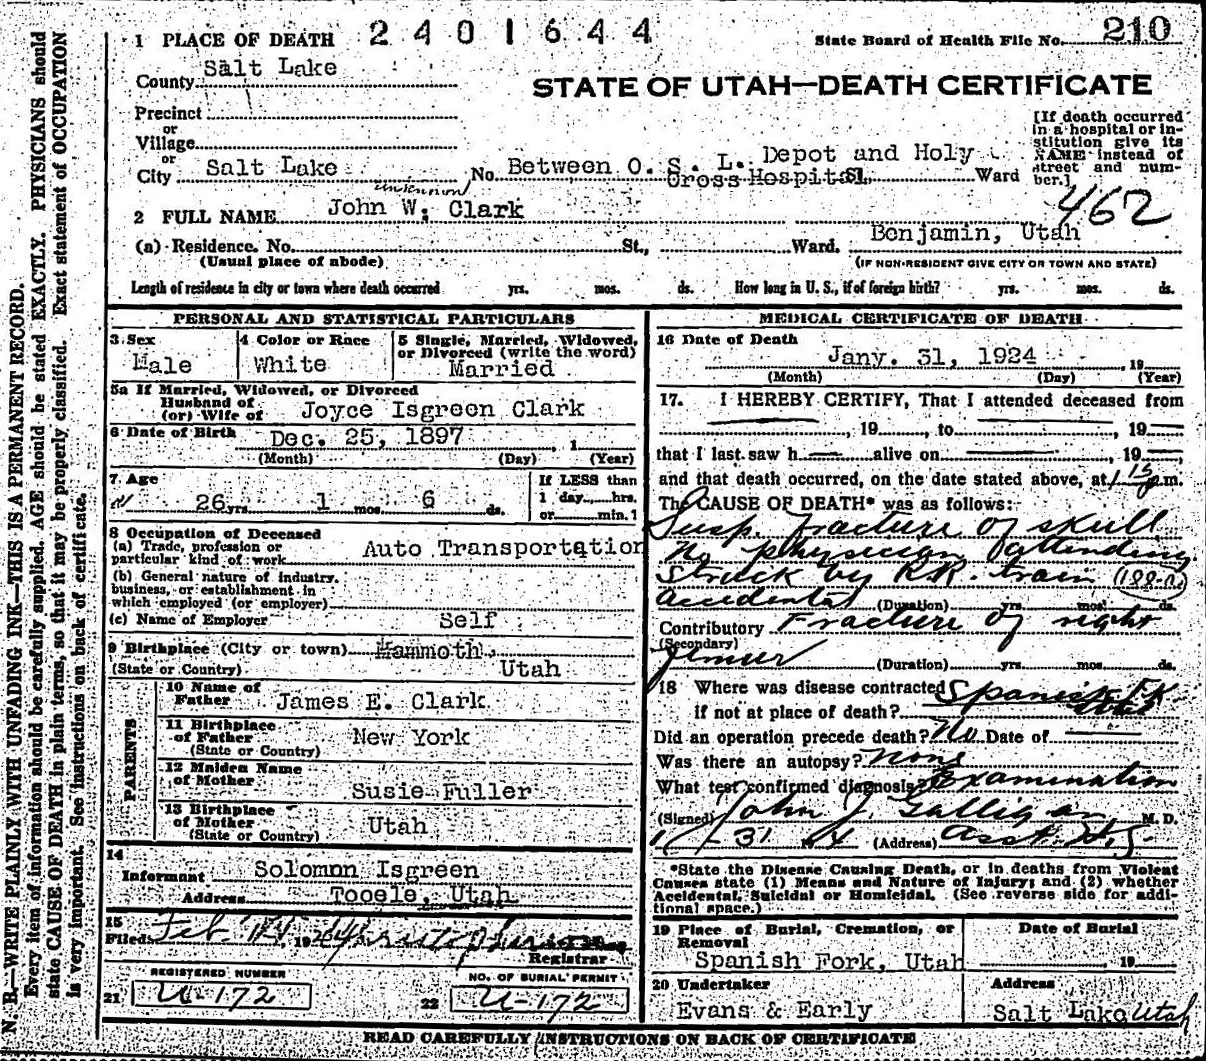 1 PLACE OF DEATH 2401644
State Board of Health File No. 210
County Salt Lake
STATE OF UTAH—DEATH CERTIFICATE
Precinct
or
Village
or
City Salt Lake No. Between O. S. L. Depot and Holy Cross Hospital St. Ward
[If death occurred
in a hospital or in-
stitution give its
NAME instead of
street and num-
ber.]
unknown
462
2 FULL NAME John W. Clark
(a) Residence. No. St., Ward. Benjamin, Utah
(Usual place of abode) (IF NON-RESIDENT GIVE CITY OR TOWN AND STATE)
Length of residence in city or town where death occurred yrs. mos. ds. How long in U. S., if of foreign birth? yrs. mos. ds.
PERSONAL AND STATISTICAL PARTICULARS
3 Sex
Male
4 Color or Race
White
5 Single, Married, Widowed,
or Divorced (write the word)
Married
5a If Married, Widowed, or Divorced
Husband of
(or) Wife of Joyce Isgreen Clark
6 Date of Birth Dec. 25, 1897 , 1
(Month) (Day) (Year)
7 Age
26 yrs. 1 mos. 6 ds.
If LESS than
1 day, hrs.
or min.
8 Occupation of Deceased
(a) Trade, profession or
particular kind of work Auto Transportation
(b) General nature of industry,
business, or establishment in
which employed (or employer)
(c) Name of Employer Self
9 Birthplace (City or town) Mammoth,
(State or Country) Utah
PARENTS
10 Name of
Father James E. Clark
11 Birthplace
of Father New York
(State or Country)
12 Maiden Name
of Mother Susie Fuller
13 Birthplace
of Mother Utah
(State or Country)
14
Informant Solomon Isgreen
Address Tooele, Utah
15
Filed Feb 1924
Registrar
REGISTERED NUMBER
21 U-172
NO. OF BURIAL PERMIT
22 U-172
MEDICAL CERTIFICATE OF DEATH
16 Date of Death
Jany. 31, 1924 , 19
(Month) (Day) (Year)
17. I HEREBY CERTIFY, That I attended deceased from
, 19 , to , 19
that I last saw h alive on , 19 ,
and that death occurred, on the date stated above, at 1 15 p.m.
The CAUSE OF DEATH* was as follows:
Susp. fracture of skull
No physician attending
Struck by R.R. train (188-a)
Accidental (Duration) yrs. mos. ds.
Contributory Fracture of right
(Secondary)
femur (Duration) yrs. mos. ds.
18 Where was disease contracted Spanish Fk
if not at place of death? Utah
Did an operation precede death? No Date of
Was there an autopsy? None
What test confirmed diagnosis? Examination
(Signed) John J. Galligan M. D.
1/31 24 (Address) Asst.
*State the Disease Causing Death, or in deaths from Violent
Causes state (1) Means and Nature of Injury; and (2) whether
Accidental, Suicidal or Homicidal. (See reverse side for addi-
tional space.)
19 Place of Burial, Cremation, or
Removal
Spanish Fork, Utah
Date of Burial
19
20 Undertaker
Evans & Early
Address
Salt Lake Utah
READ CAREFULLY INSTRUCTIONS ON BACK OF CERTIFICATE
N. B.—WRITE PLAINLY WITH UNFADING INK—THIS IS A PERMANENT RECORD.
Every item of information should be carefully supplied. AGE should be stated EXACTLY. PHYSICIANS should
state CAUSE OF DEATH in plain terms, so that it may be properly classified. Exact statement of OCCUPATION
is very important. See instructions on back of certificate.